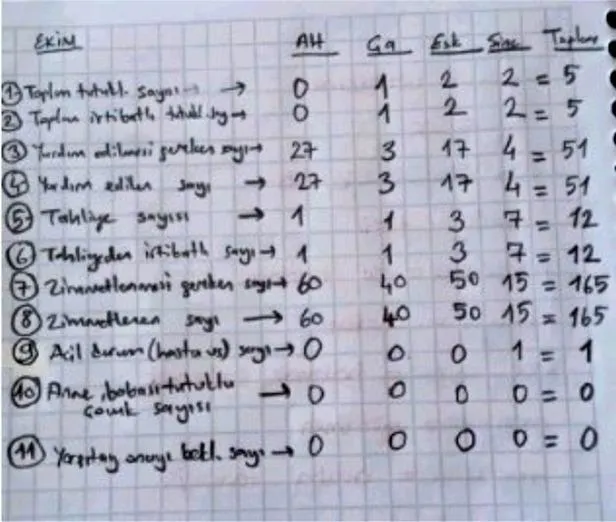 EKİM AH Ga Esk Sinc Toplam
① Toplam tutukl. sayısı → 0 1 2 2 = 5
② Toplam irtibatlı tutukl. sy → 0 1 2 2 = 5
③ Yardım edilmesi gereken sayı → 27 3 17 4 = 51
④ Yardım edilen sayı → 27 3 17 4 = 51
⑤ Tahliye sayısı → 1 1 3 7 = 12
⑥ Tahliyeden irtibatlı sayı → 1 1 3 7 = 12
⑦ Zimmetlenmesi gereken sayı → 60 40 50 15 = 165
⑧ Zimmetlenen sayı → 60 40 50 15 = 165
⑨ Acil durum (hasta vs) sayı → 0 0 0 1 = 1
⑩ Anne, babası tutuklu → 0 0 0 0 = 0
çocuk sayısı
⑪ Yargıtay onayı bekl. sayı → 0 0 0 0 = 0